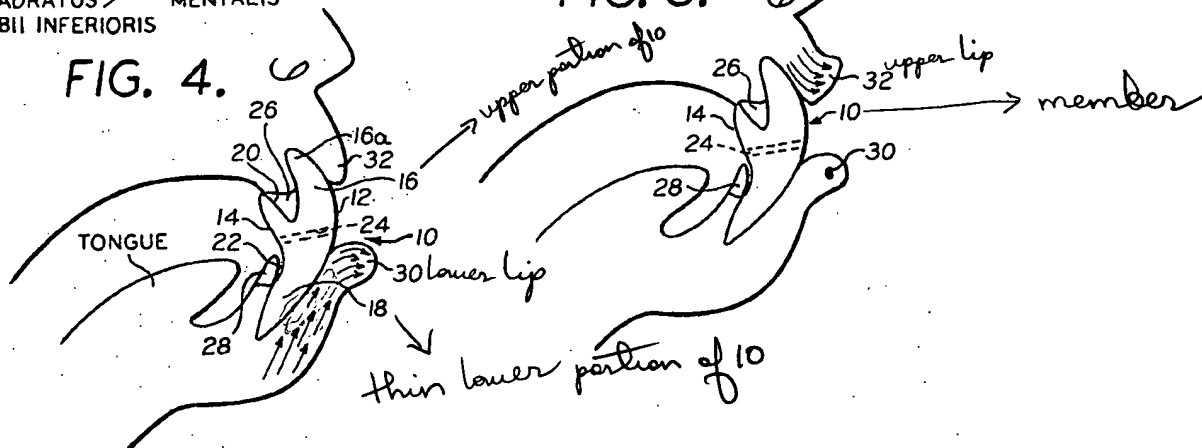 ADRATUS MENTALIS
BII INFERIORIS
FIG. 4.
26
20
16a
32
16
12
14
24
22
10
TONGUE
30 lower lip
18
28
upper portion of 10
thin lower portion of 10
26
32 upper lip
14
10
member
24
30
28